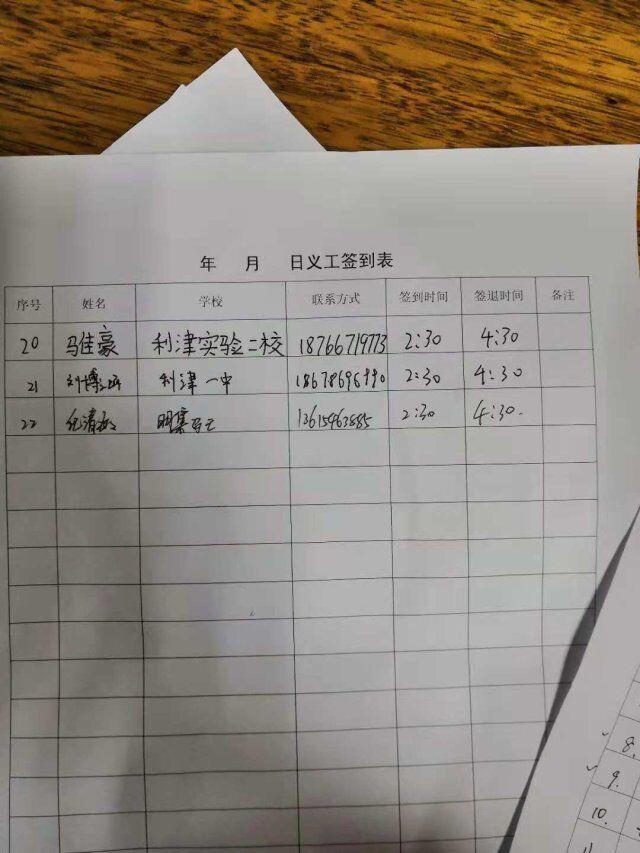 年 月 日义工签到表
序号 姓名 学校 联系方式 签到时间 签退时间 备注
20 马佳豪 利津实验二校 18766719773 2:30 4:30
21 利津一中 2:30 4:30
22 明集 2:30 4:30
8.
9.
10.